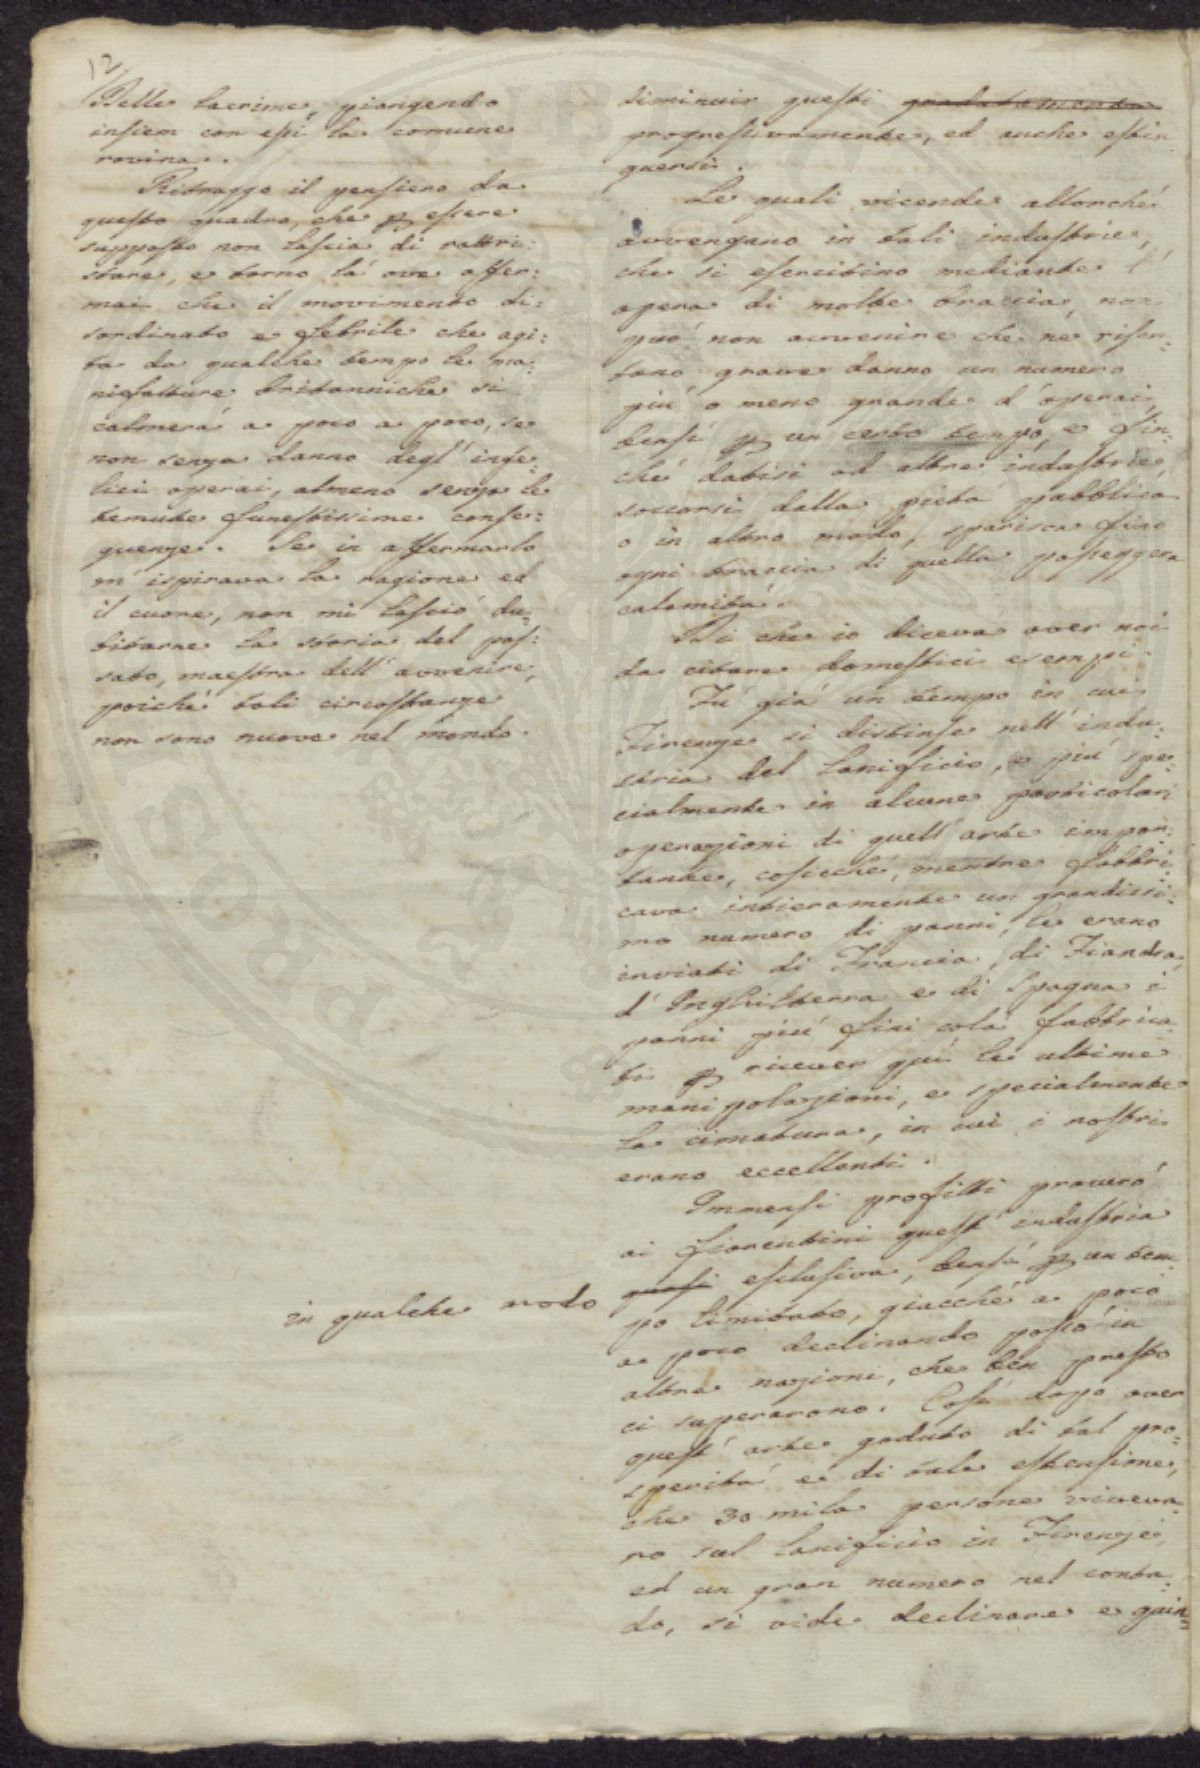 12
Delle lacrime, piangendo
insiem con essi la comune
rovina.
Ritraggo il pensiero da
questo quadro, che p essere
supposto non lascia di rattri:
stare, e torno là ove affer:
mai che il movimento di:
sordinato e febrile che agi:
ta da qualche tempo le ma:
nifatture britanniche si
calmerà a poco a poco, se
non senza danno degl' infe:
lici operai, almeno senza le
temute funestissime conse:
guenze. Se in affermarlo
m' ispirava la ragione ed
il cuore, non mi lasciò du:
bitarne la storia del pas:
sato, maestra dell' avvenire,
poiché tali circostanze
non sono nuove nel mondo.
diminuir questi gradatamente
progressivamente, ed anche estin
guersi.
Le quali vicende allorché
avvengano in tali industrie,
che si esercitino mediante l'
opera di molte braccia, non
può non avvenire che ne risen:
tano grave danno un numero
più o meno grande d' operai,
bensì p un certo tempo, e fin:
ché datisi ad altre industrie,
soccorsi dalla pietà pubblica
o in altro modo, sparisca fino
ogni traccia di quella passeggera
calamità.
Di che io diceva aver noi
da citare domestici esempi.
Fù già un tempo in cui
Firenze si distinse nell' indu:
stria del Lanificio, e più spe:
cialmente in alcune particolari
operazioni di quell' arte impor:
tante, cosicché, mentre fabbri:
cava intieramente un grandissi:
mo numero di panni, le erano
inviati di Francia, di Fiandra,
d' Inghilterra e di Spagna i
panni più fini colà fabbrica
ti p ricever quì le ultime
manipolazioni, e specialmente
la cimatura, in cui i nostri
erano eccellenti.
Immensi profitti procurò
ai fiorentini quest' industria
in qualche modo quasi esclusiva, bensì p un tem:
po limitato, giacché a poco
a poco declinando passò in
altre nazioni, che ben presto
ci superarono. Così dopo aver
quest' arte goduto di tal pro:
sperità e di tale estensione,
che 30 mila persone viveva:
no sul lanificio in Firenze,
ed un gran numero nel conta:
do, si vide declinare e quin: